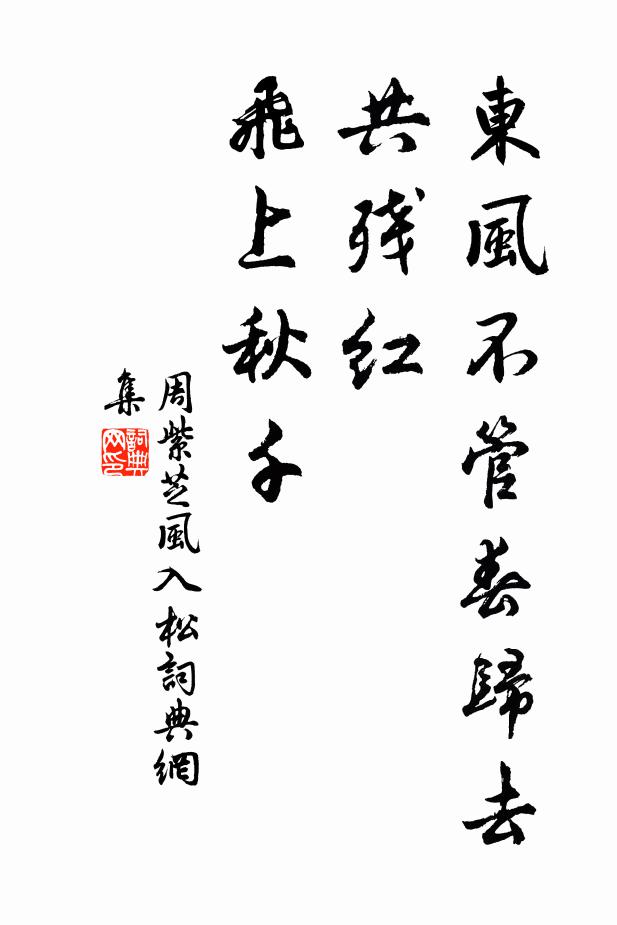 東風不管春歸去
共残紅
飛上秋千
周紫芝風入松詞典網
集
詞典
网印